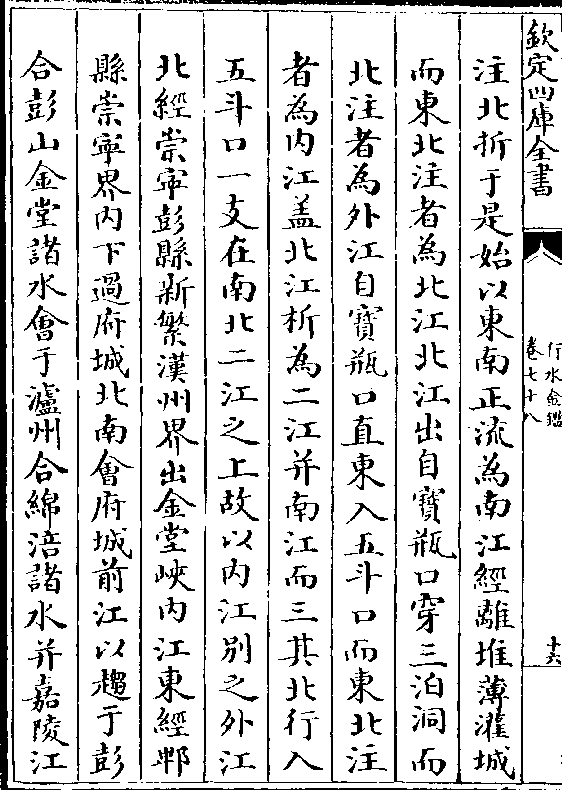 欽定四庫全書
行水金鑑
卷七十八
十六
注北折于是始以東南正流為南江經離堆薄灌城
而東北注者為北江北江出自寶瓶口穿三泊洞而
北注者為外江自寶瓶口直東入五斗口而東北注
者為内江盖北江析為二江并南江而三其北行入
五斗口一支在南北二江之上故以内江别之外江
北經崇寕彭縣新繁漢州界出金堂峽内江東經郫
縣崇寕界内下過府城北南會府城前江以趨于彭
合彭山金堂諸水會于瀘州合綿涪諸水并嘉陵江